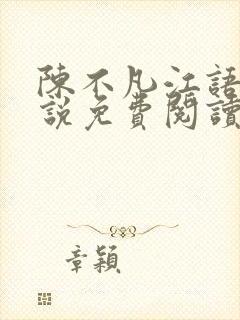 陳不凡江語
說免費閱讀
章穎